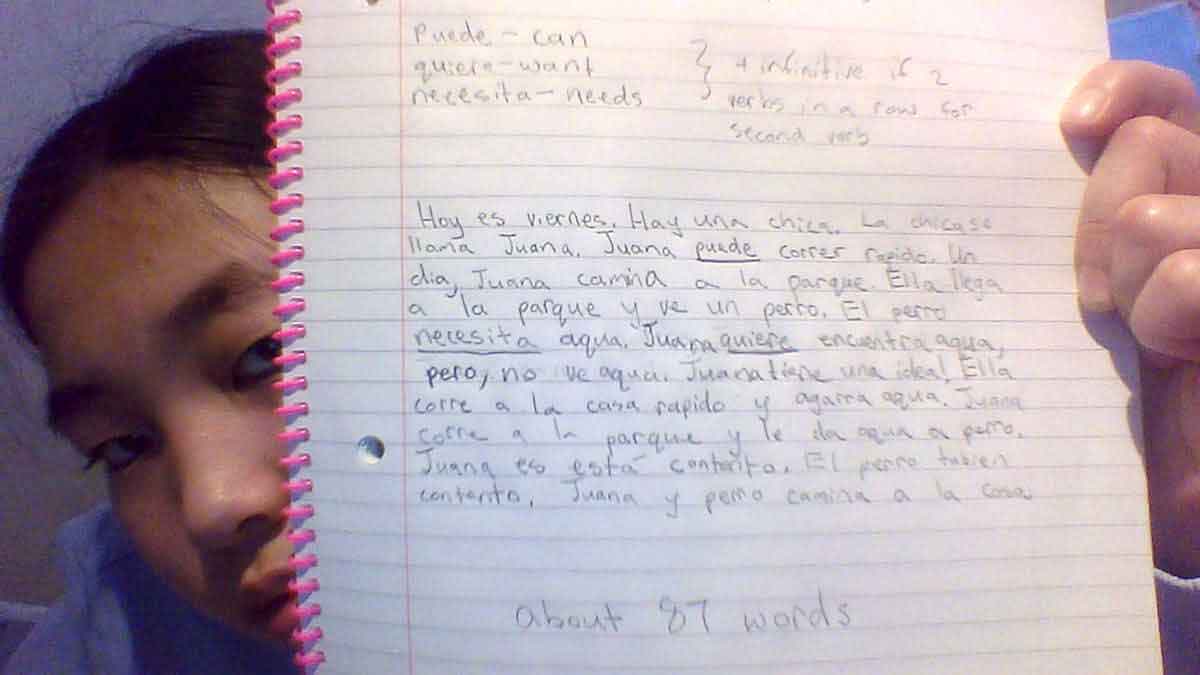 puede - can
quiere - want
necesita - needs
} + infinitive if 2
verbs in a row for
second verb
Hoy es viernes. Hay una chica. La chica se
llama Juana. Juana puede correr rapido. Un
dia, Juana camina a la parque. Ella llega
a la parque y ve un perro. El perro
necesita aqua. Juana quiere encuentra aqua,
pero, no ve aqua. Juana tiene una idea! Ella
corre a la casa rapido y agarra aqua. Juana
corre a la parque y le da aqua a perro.
Juana es está contento. El perro tabien
contento. Juana y perro camina a la casa
about 87 words